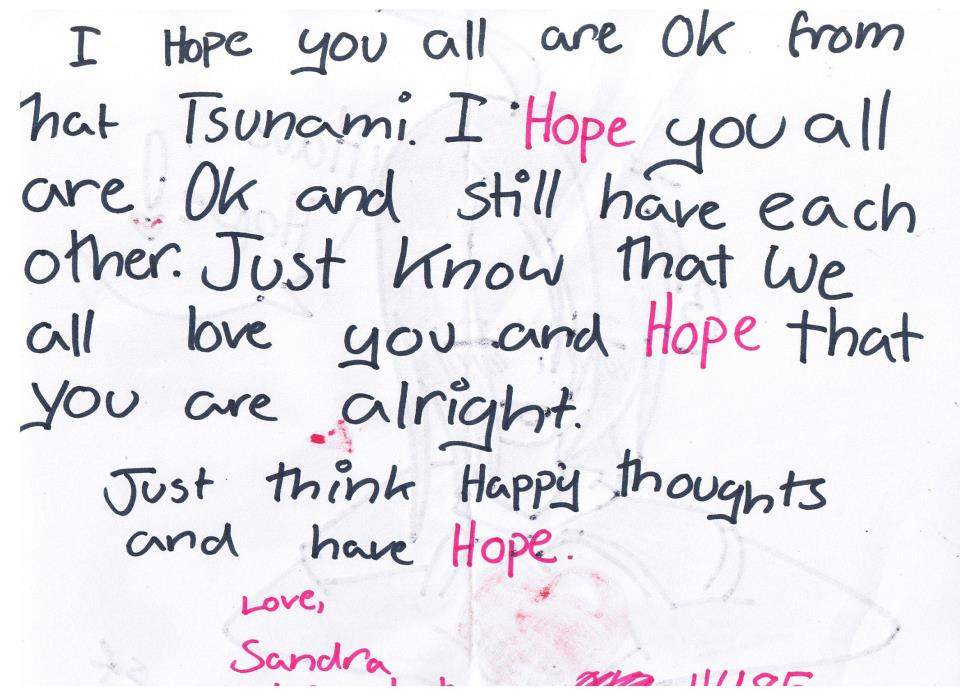 I Hope you all are Ok from
hat Tsunami. I Hope you all
are Ok and still have each
other. Just Know that we
all love you and Hope that
you are alright.
Just think Happy thoughts
and have Hope.
Love,
Sandra